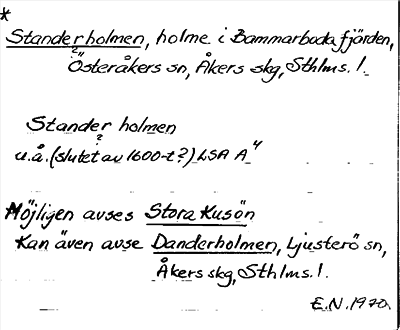 *
Standerholmen, holme i Bammarboda fjärden,
?"
Österåkers sn, Åkers skg, Sthlms. l.
Stander holmen
?
u.å. (slutet av 1600-t?) LSA A 4
Möjligen avses Stora Kusön
Kan även avse Danderholmen, Ljusterö sn,
Åkers skg, Sthlms. l.
E.N. 1970.